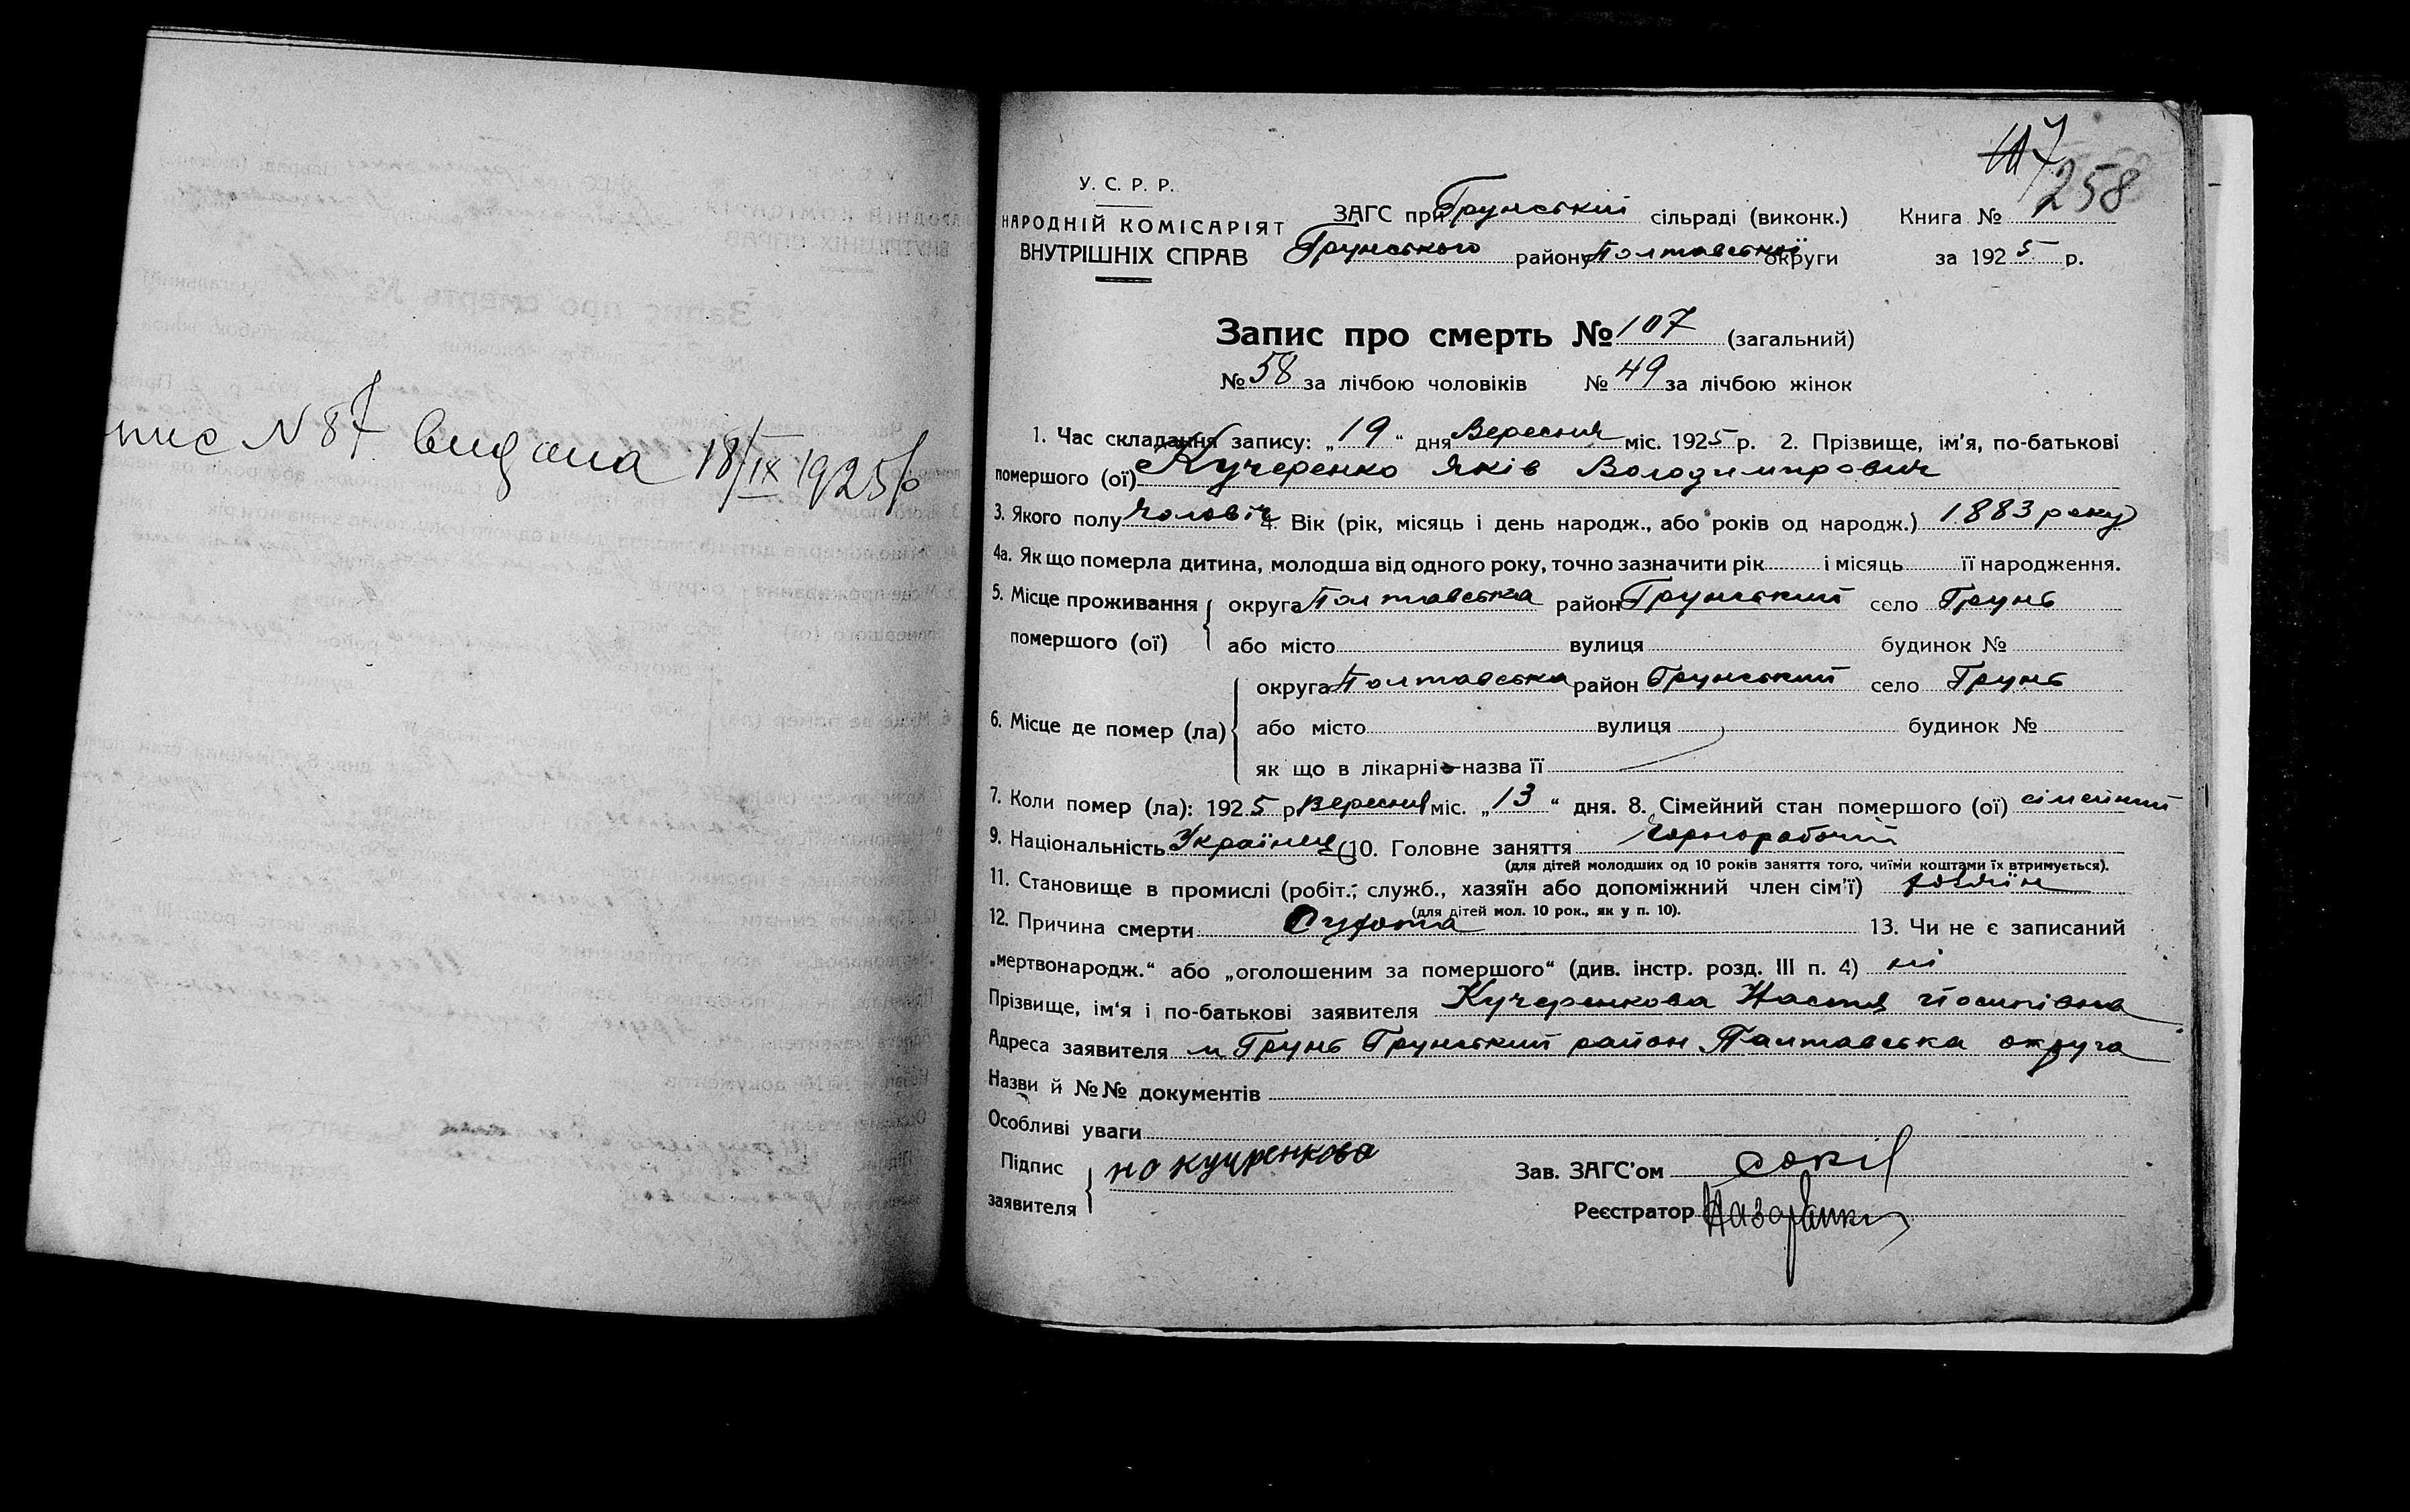 пис N 87 видана 18/IX 1925 р
107
258
У. С. Р. Р.
НАРОДНІЙ КОМІСАРІЯТ
ВНУТРІШНІХ СПРАВ
ЗАГС при Грунський сільраді (виконк.) Книга №
Грунського району Полтавської округи за 1925 р.
Запис про смерть № 107 (загальний)
№ 58 за лічбою чоловіків № 49 за лічбою жінок
1. Час складання запису: „19“ дня Вересня міс. 1925 р. 2. Прізвище, ім'я, по-батькові
помершого (ої) Кучеренко Яків Володимирович
3. Якого полу чоловіч 4. Вік (рік, місяць і день народж., або років од народж.) 1883 року
4а. Як що померла дитина, молодша від одного року, точно зазначити рік і місяць її народження.
5. Місце проживання помершого (ої) округа Полтавська район Грунський село Грунь
або місто вулиця будинок №
6. Місце де помер (ла) округа Полтавська район Грунський село Грунь
або місто вулиця будинок №
як що в лікарні-назва її
7. Коли помер (ла): 1925 р Вересня міс. „13“ дня. 8. Сімейний стан помершого (ої) сімейний
9. Національність Українец 10. Головне заняття Чорнорабочий
(для дітей молодших од 10 років заняття того, чиїми коштами їх втримується).
11. Становище в промислі (робіт., служб., хазяїн або допоміжний член сім'ї) хозяїн
(для дітей мол. 10 рок., як у п. 10).
12. Причина смерти Сухота 13. Чи не є записаний
„мертвонародж.“ або „оголошеним за помершого“ (див. інстр. розд. III п. 4) ні
Прізвище, ім'я і по-батькові заявителя Кучеренкова Настя Йосипівна
Адреса заявителя м Грунь Грунський район Полтавська округа
Назви й №№ документів
Особливі уваги
Підпис заявителя Кучеренкова
Зав. ЗАГС'ом
Реєстратор